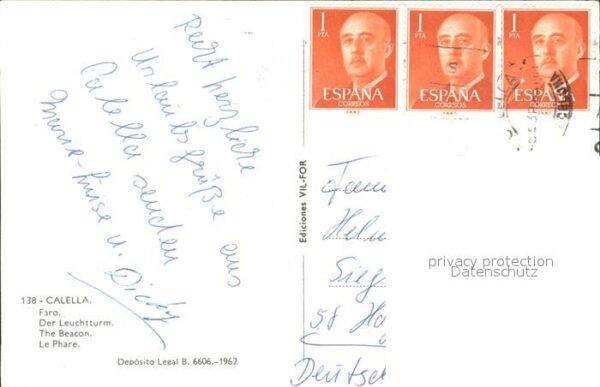 Recht herzliche
Urlaubsgrüße aus
Calella senden
Marie-Luise u. Dicky
138 - CALELLA.
Faro.
Der Leuchtturm.
The Beacon.
Le Phare.
Depósito Legal B. 6606.-1962
Ediciones VIL-FOR
1
PTA
ESPAÑA
CORREOS
1
PTA
ESPAÑA
CORREOS
1
PTA
ESPAÑA
CORREOS
Fam
Helm
Sieg
58 Ha
Deutsc
privacy protection
Datenschutz